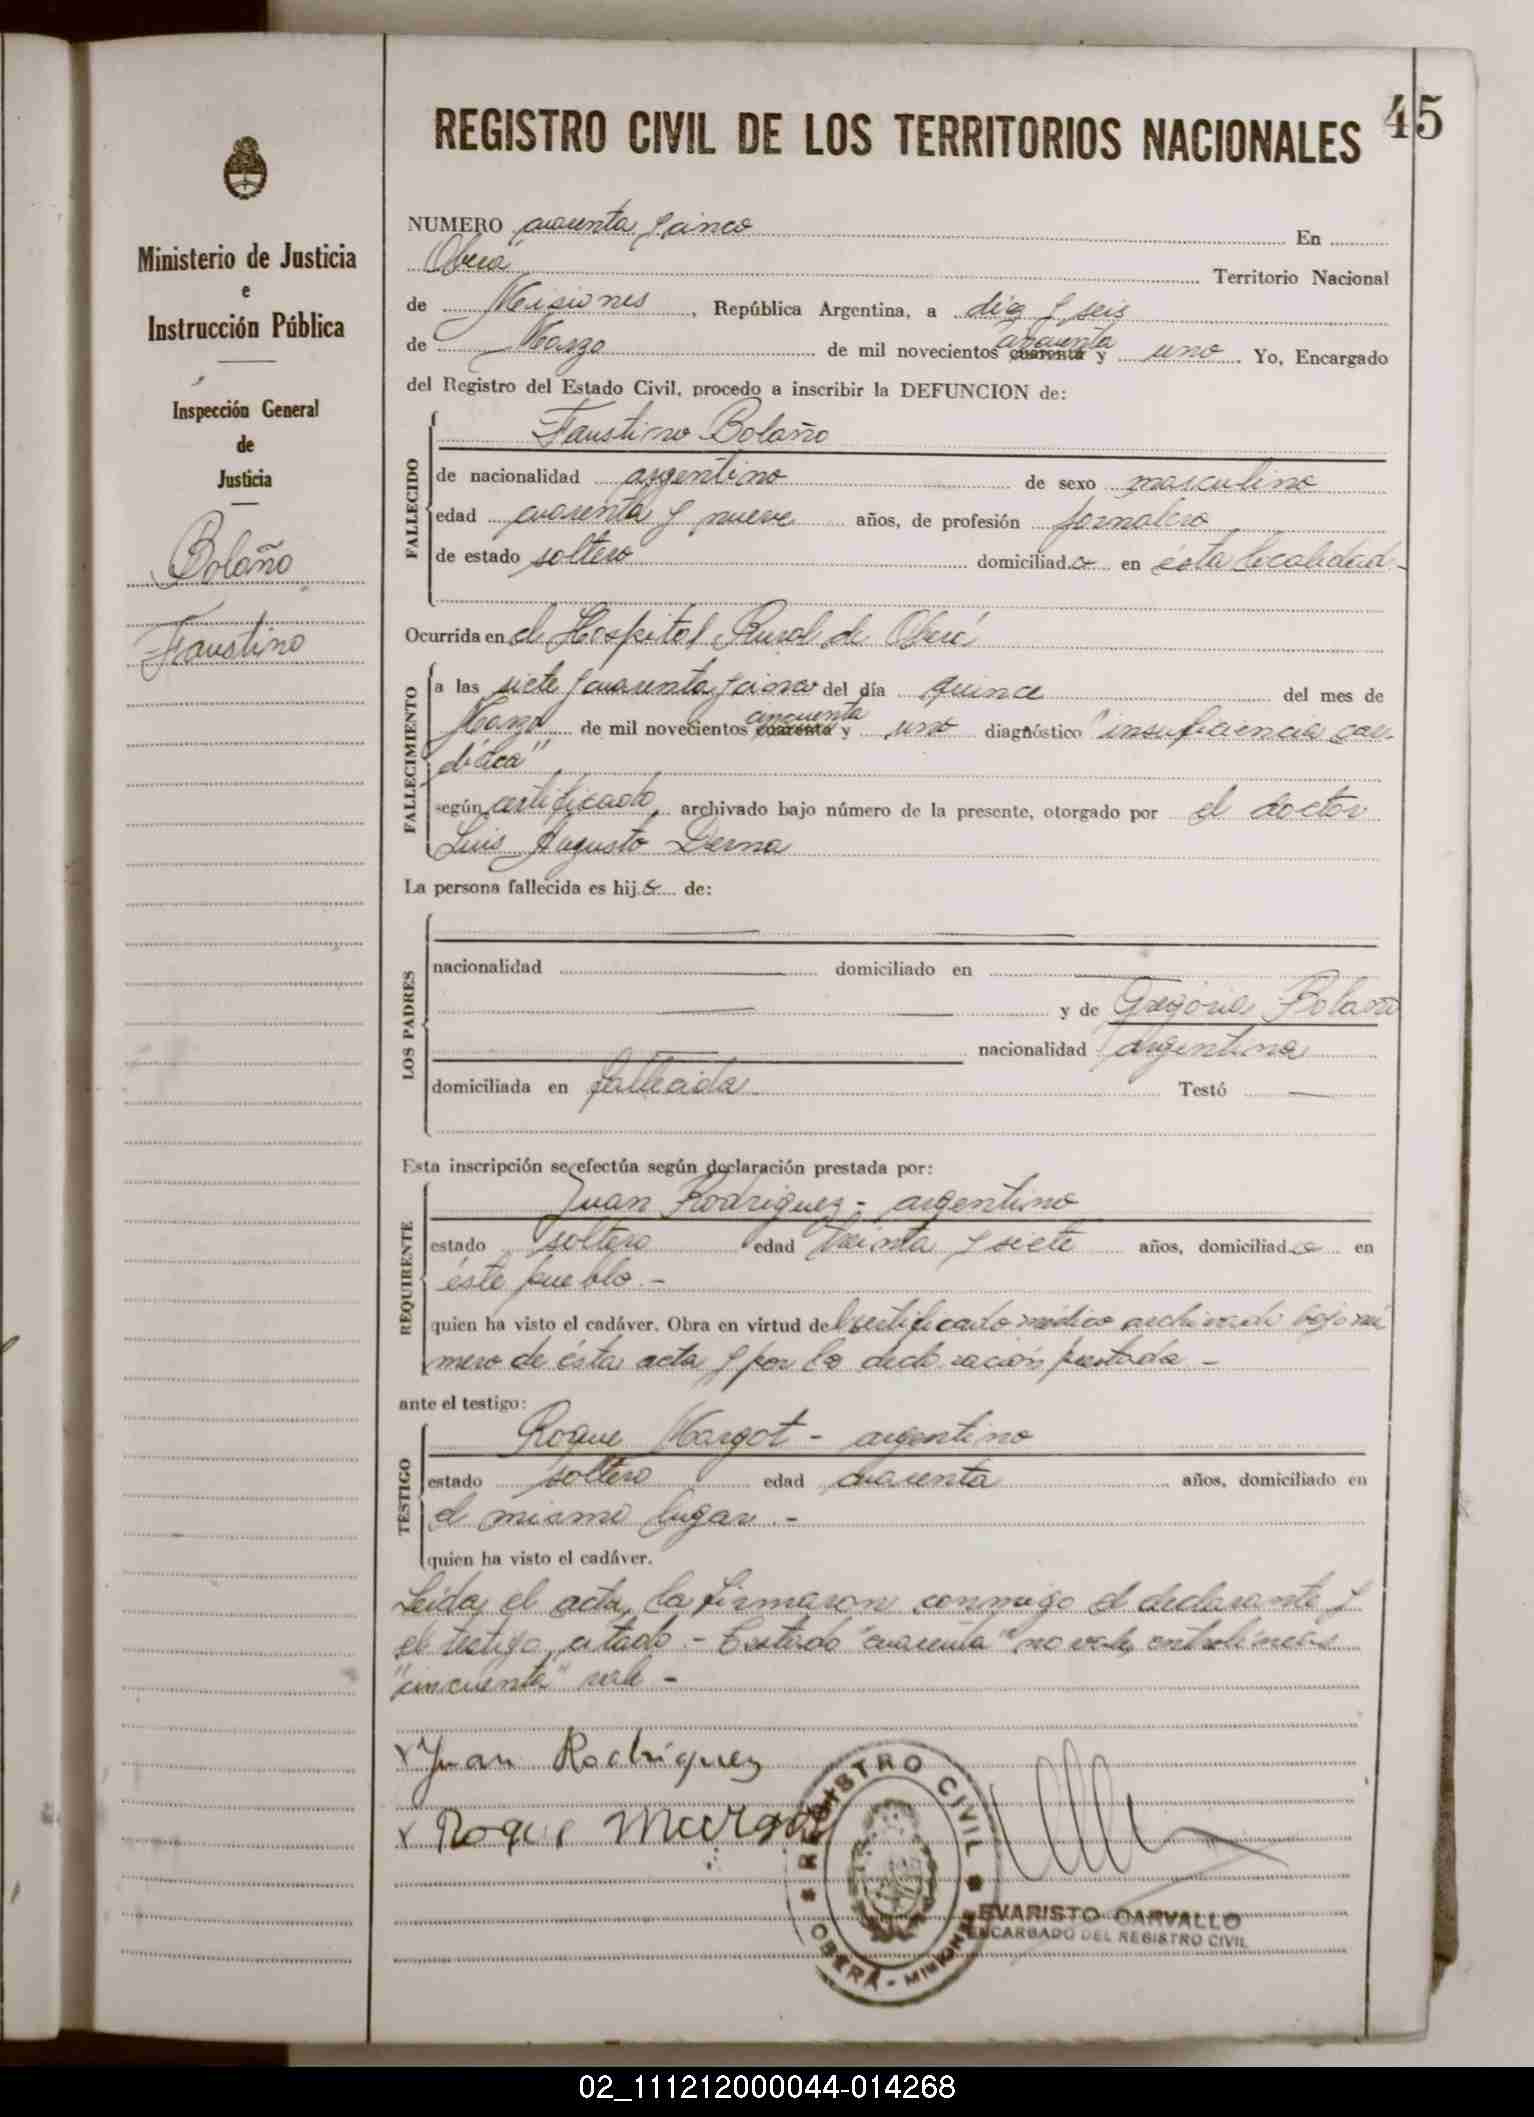 45
REGISTRO CIVIL DE LOS TERRITORIOS NACIONALES
Ministerio de Justicia
e
Instrucción Pública
Inspección General
de
Justicia
Bolaño
Faustino
NUMERO cuarenta y cinco En
Oberá Territorio Nacional
de Misiones, República Argentina, a diez y seis
de Marzo de mil novecientos cuarenta cincuenta y uno. Yo, Encargado
del Registro del Estado Civil, procedo a inscribir la DEFUNCION de:
FALLECIDO
Faustino Bolaño
de nacionalidad argentino de sexo masculino
edad cuarenta y nueve años, de profesión jornalero
de estado soltero domiciliado en ésta localidad-
Ocurrida en el Hospital Rural de Oberá
FALLECIMIENTO
a las siete y cuarenta y cinco del día quince del mes de
Marzo de mil novecientos cuarenta cincuenta y uno diagnóstico "insuficiencia car-
díaca"
según certificado archivado bajo número de la presente, otorgado por el doctor
Luis Augusto Derna
La persona fallecida es hijo de:
LOS PADRES
nacionalidad domiciliado en
y de Gregoria Bolaño
nacionalidad argentina
domiciliada en fallecida Testó
Esta inscripción se efectúa según declaración prestada por:
REQUIRENTE
Juan Rodriguez - argentino
estado soltero edad treinta y siete años, domiciliado en
éste pueblo.-
quien ha visto el cadáver. Obra en virtud del certificado médico archivado bajo nú
mero de ésta acta y por la declaración prestada -
ante el testigo:
TESTIGO
Roque Margot - argentino
estado soltero edad cuarenta años, domiciliado en
el mismo lugar.-
quien ha visto el cadáver.
Leida el acta, la firmaron conmigo el declarante y
el testigo citado.- Testado "cuarenta" no vale, entrelíneas
"cincuenta" vale -
x Juan Rodriguez
x Roque Margot
REGISTRO CIVIL
OBERA - MISIONES
EVARISTO CARVALLO
ENCARGADO DEL REGISTRO CIVIL
02_111212000044-014268